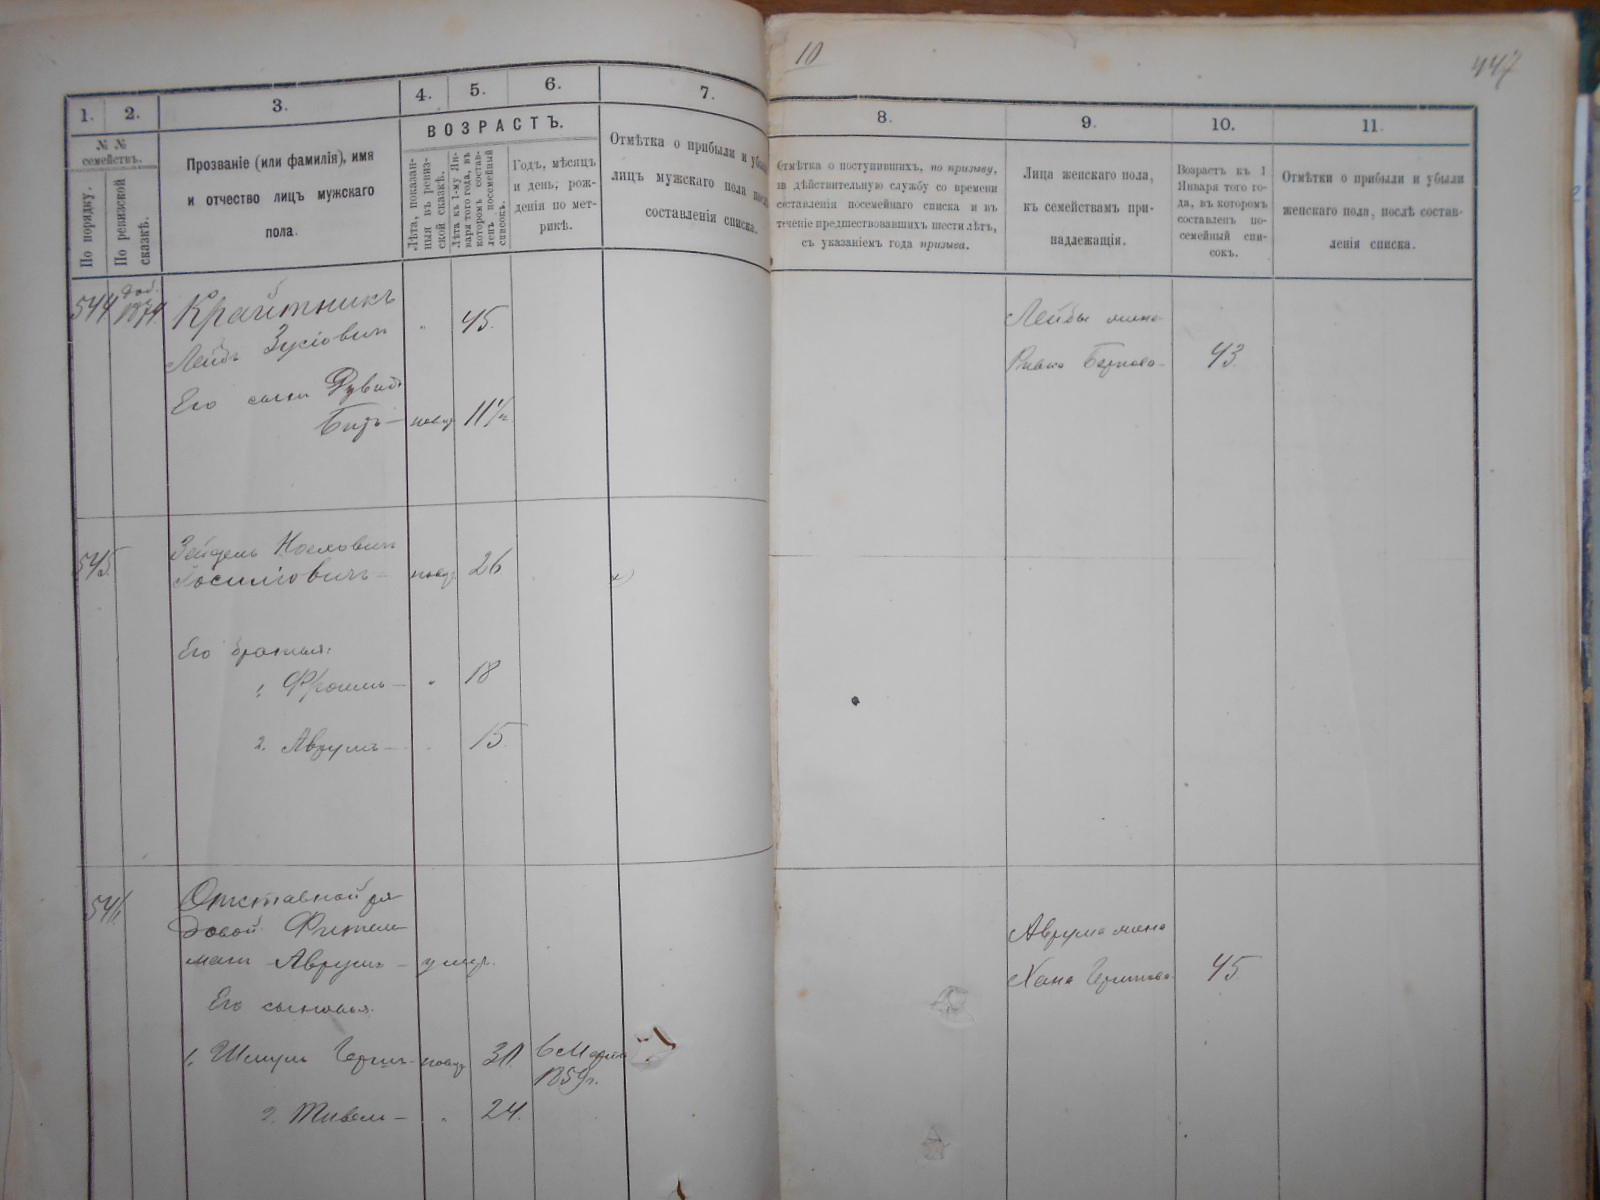 10
447
1. 2. 3. 4. 5. 6. 7. 8. 9. 10. 11.
№ № семействъ.
По порядку.
По ревизской сказкѣ.
Прозваніе (или фамилія), имя
и отчество лицъ мужскаго
пола.
ВОЗРАСТЪ.
Лѣта, показан-
ныя въ ревиз-
ской сказкѣ.
Лѣта къ 1-му Ян-
варя того года, въ
которомъ состав-
ленъ посемейный
списокъ.
Годъ, мѣсяцъ
и день; рож-
денія по мет-
рикѣ.
Отмѣтка о прибыли и убыли
лицъ мужскаго пола послѣ
составленія списка.
Отмѣтка о поступившихъ, по призыву,
въ дѣйствительную службу со времени
составленія посемейнаго списка и въ
теченіе предшествовавшихъ шести лѣтъ,
съ указаніемъ года призыва.
Лица женскаго пола,
къ семействамъ при-
надлежащія.
Возрастъ къ 1
Января того го-
да, въ которомъ
составленъ по-
семейный спи-
сокъ.
Отмѣтки о прибыли и убыли
женскаго пола, послѣ состав-
ленія списка.
544 доб. 1874 Крайтникъ
Лейбъ Зусіовичъ " 45. Лейбы жена
43.
Его сынъ Дувидъ
11½
545 Зейдель
26
Его братья:
1. Фроимъ — " 18
2. Аврумъ — " 15.
546 Отставной ря
довой
Аврумъ — умер. Аврума жена
Хана 45
Его сыновья.
1. Шмуль Герш- 30. 6 Марта
1859г.
2. — " 24.